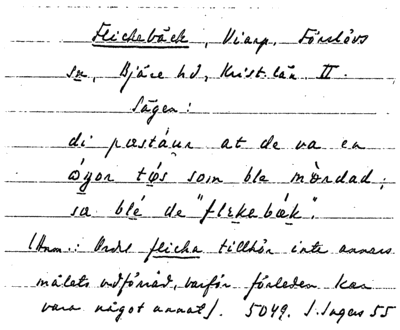 Flickebäck, Viarp, Förslövs
sn, Bjäre hd, Krist. län II.
Sägen:
di pæstáur at de va en
óyor tø̀s som ble mö̀rdad;
sa blé de "flekebæk".
(Anm.: Ordet flicka tillhör inte annars
målets ordförråd, varför förleden kan
vara något annat). 5049. I. Ingers 55